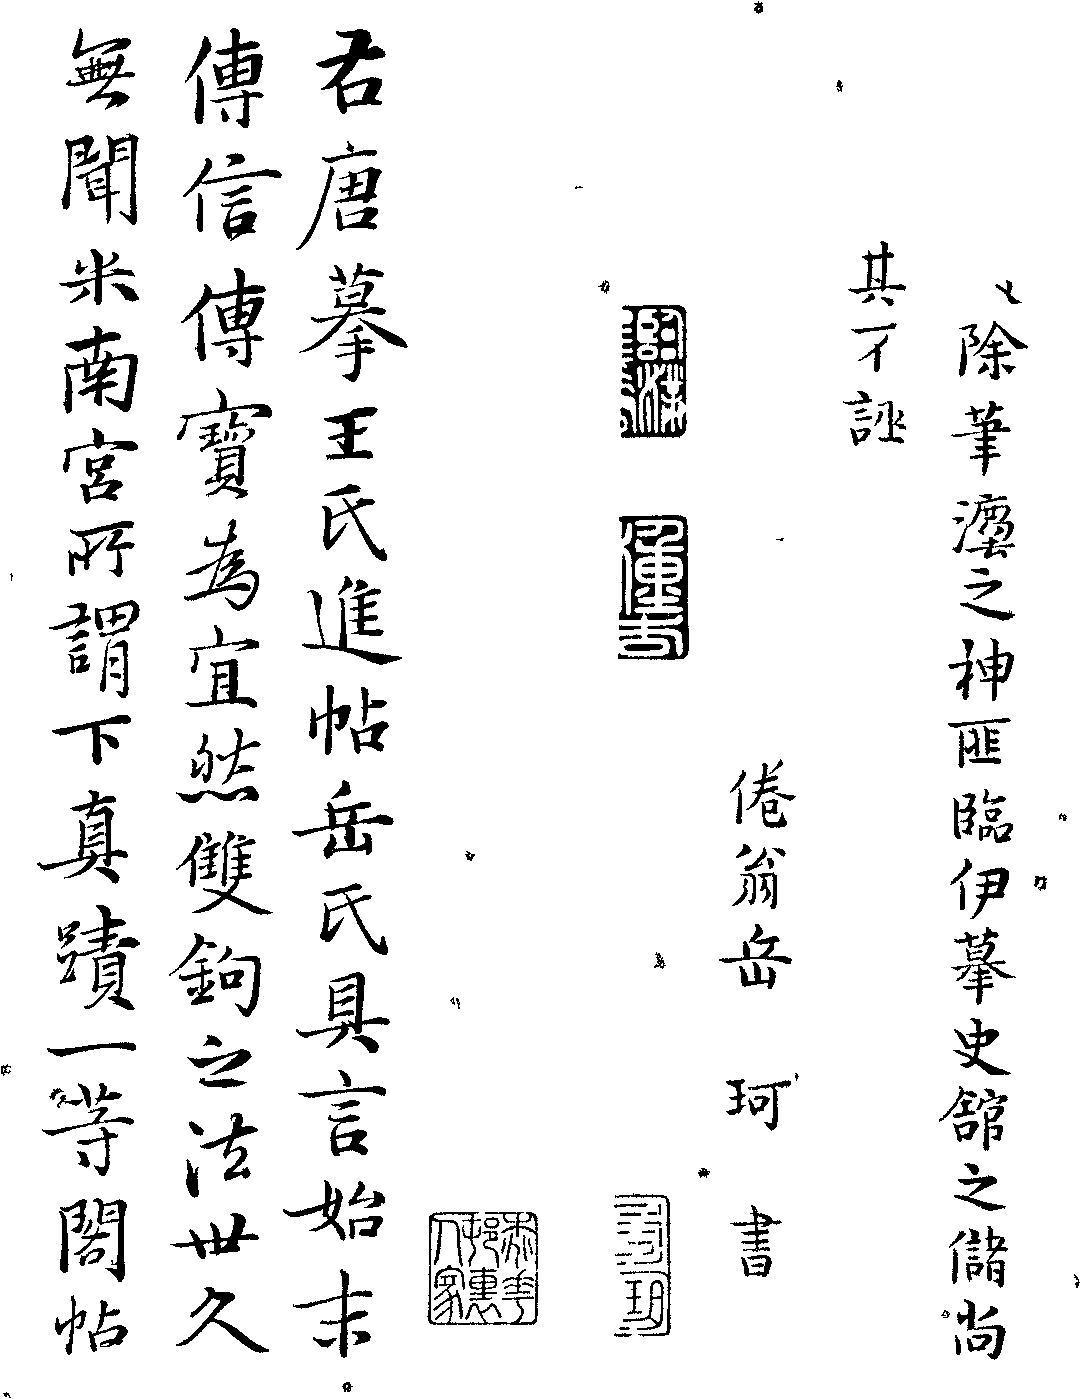 除筆灋之神匪臨伊摹史舘之儲尚
其不誣
倦翁岳珂書
君唐摹王氏進帖岳氏具言始末
傳信傳寶為宜然雙鉤之法世久
無聞米南宮所謂下真蹟一等閣帖